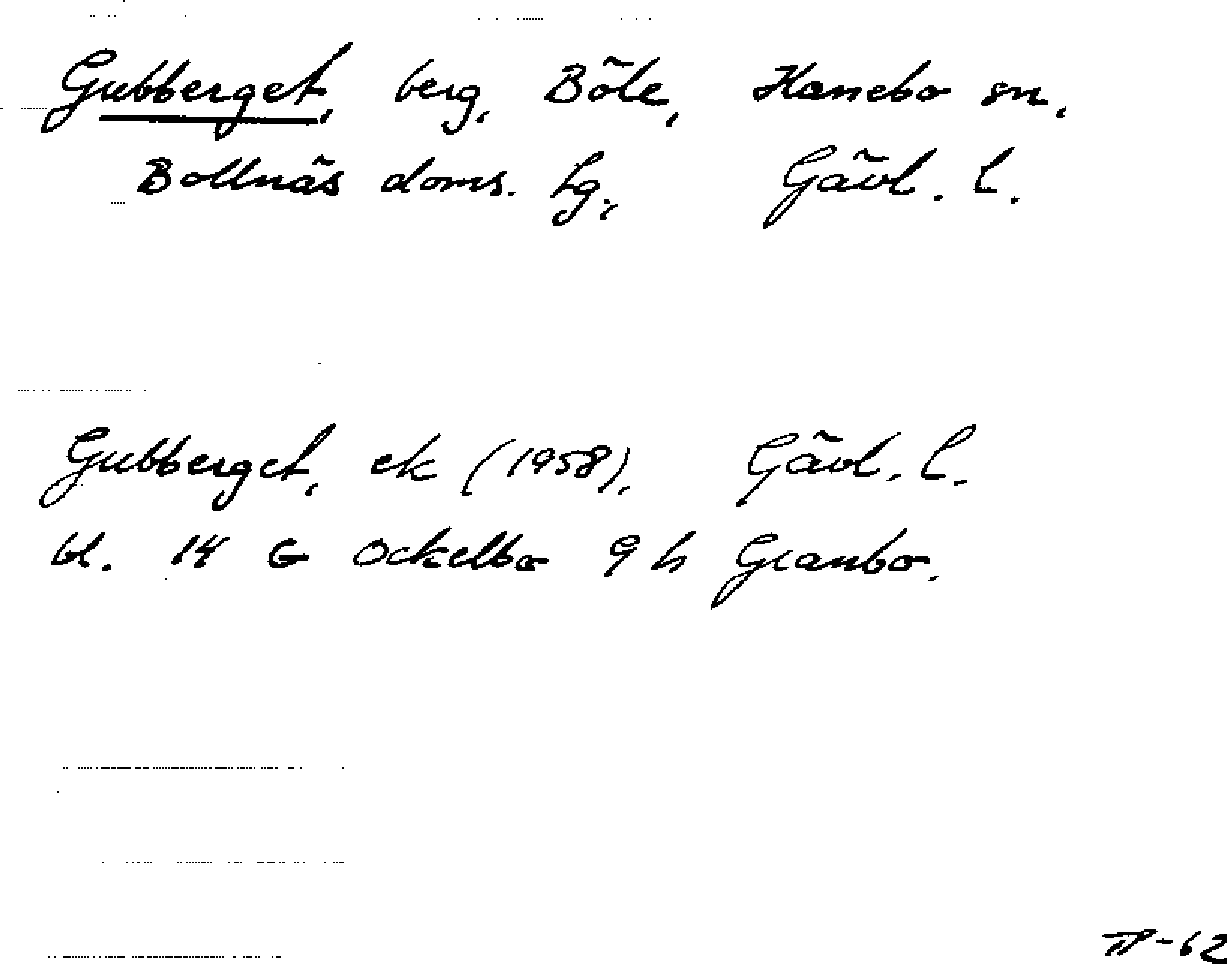 Gubberget, berg, Böle, Hanebo sn,
Bollnäs doms. hg., Gävl. l.
Gubberget, ek (1958), Gävl. l.
bl. 14 G Ockelbo 9 h Granbo.
-62